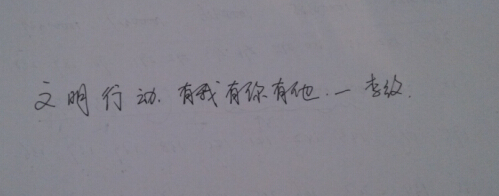 文明行动.有我有你有他.一李纹.